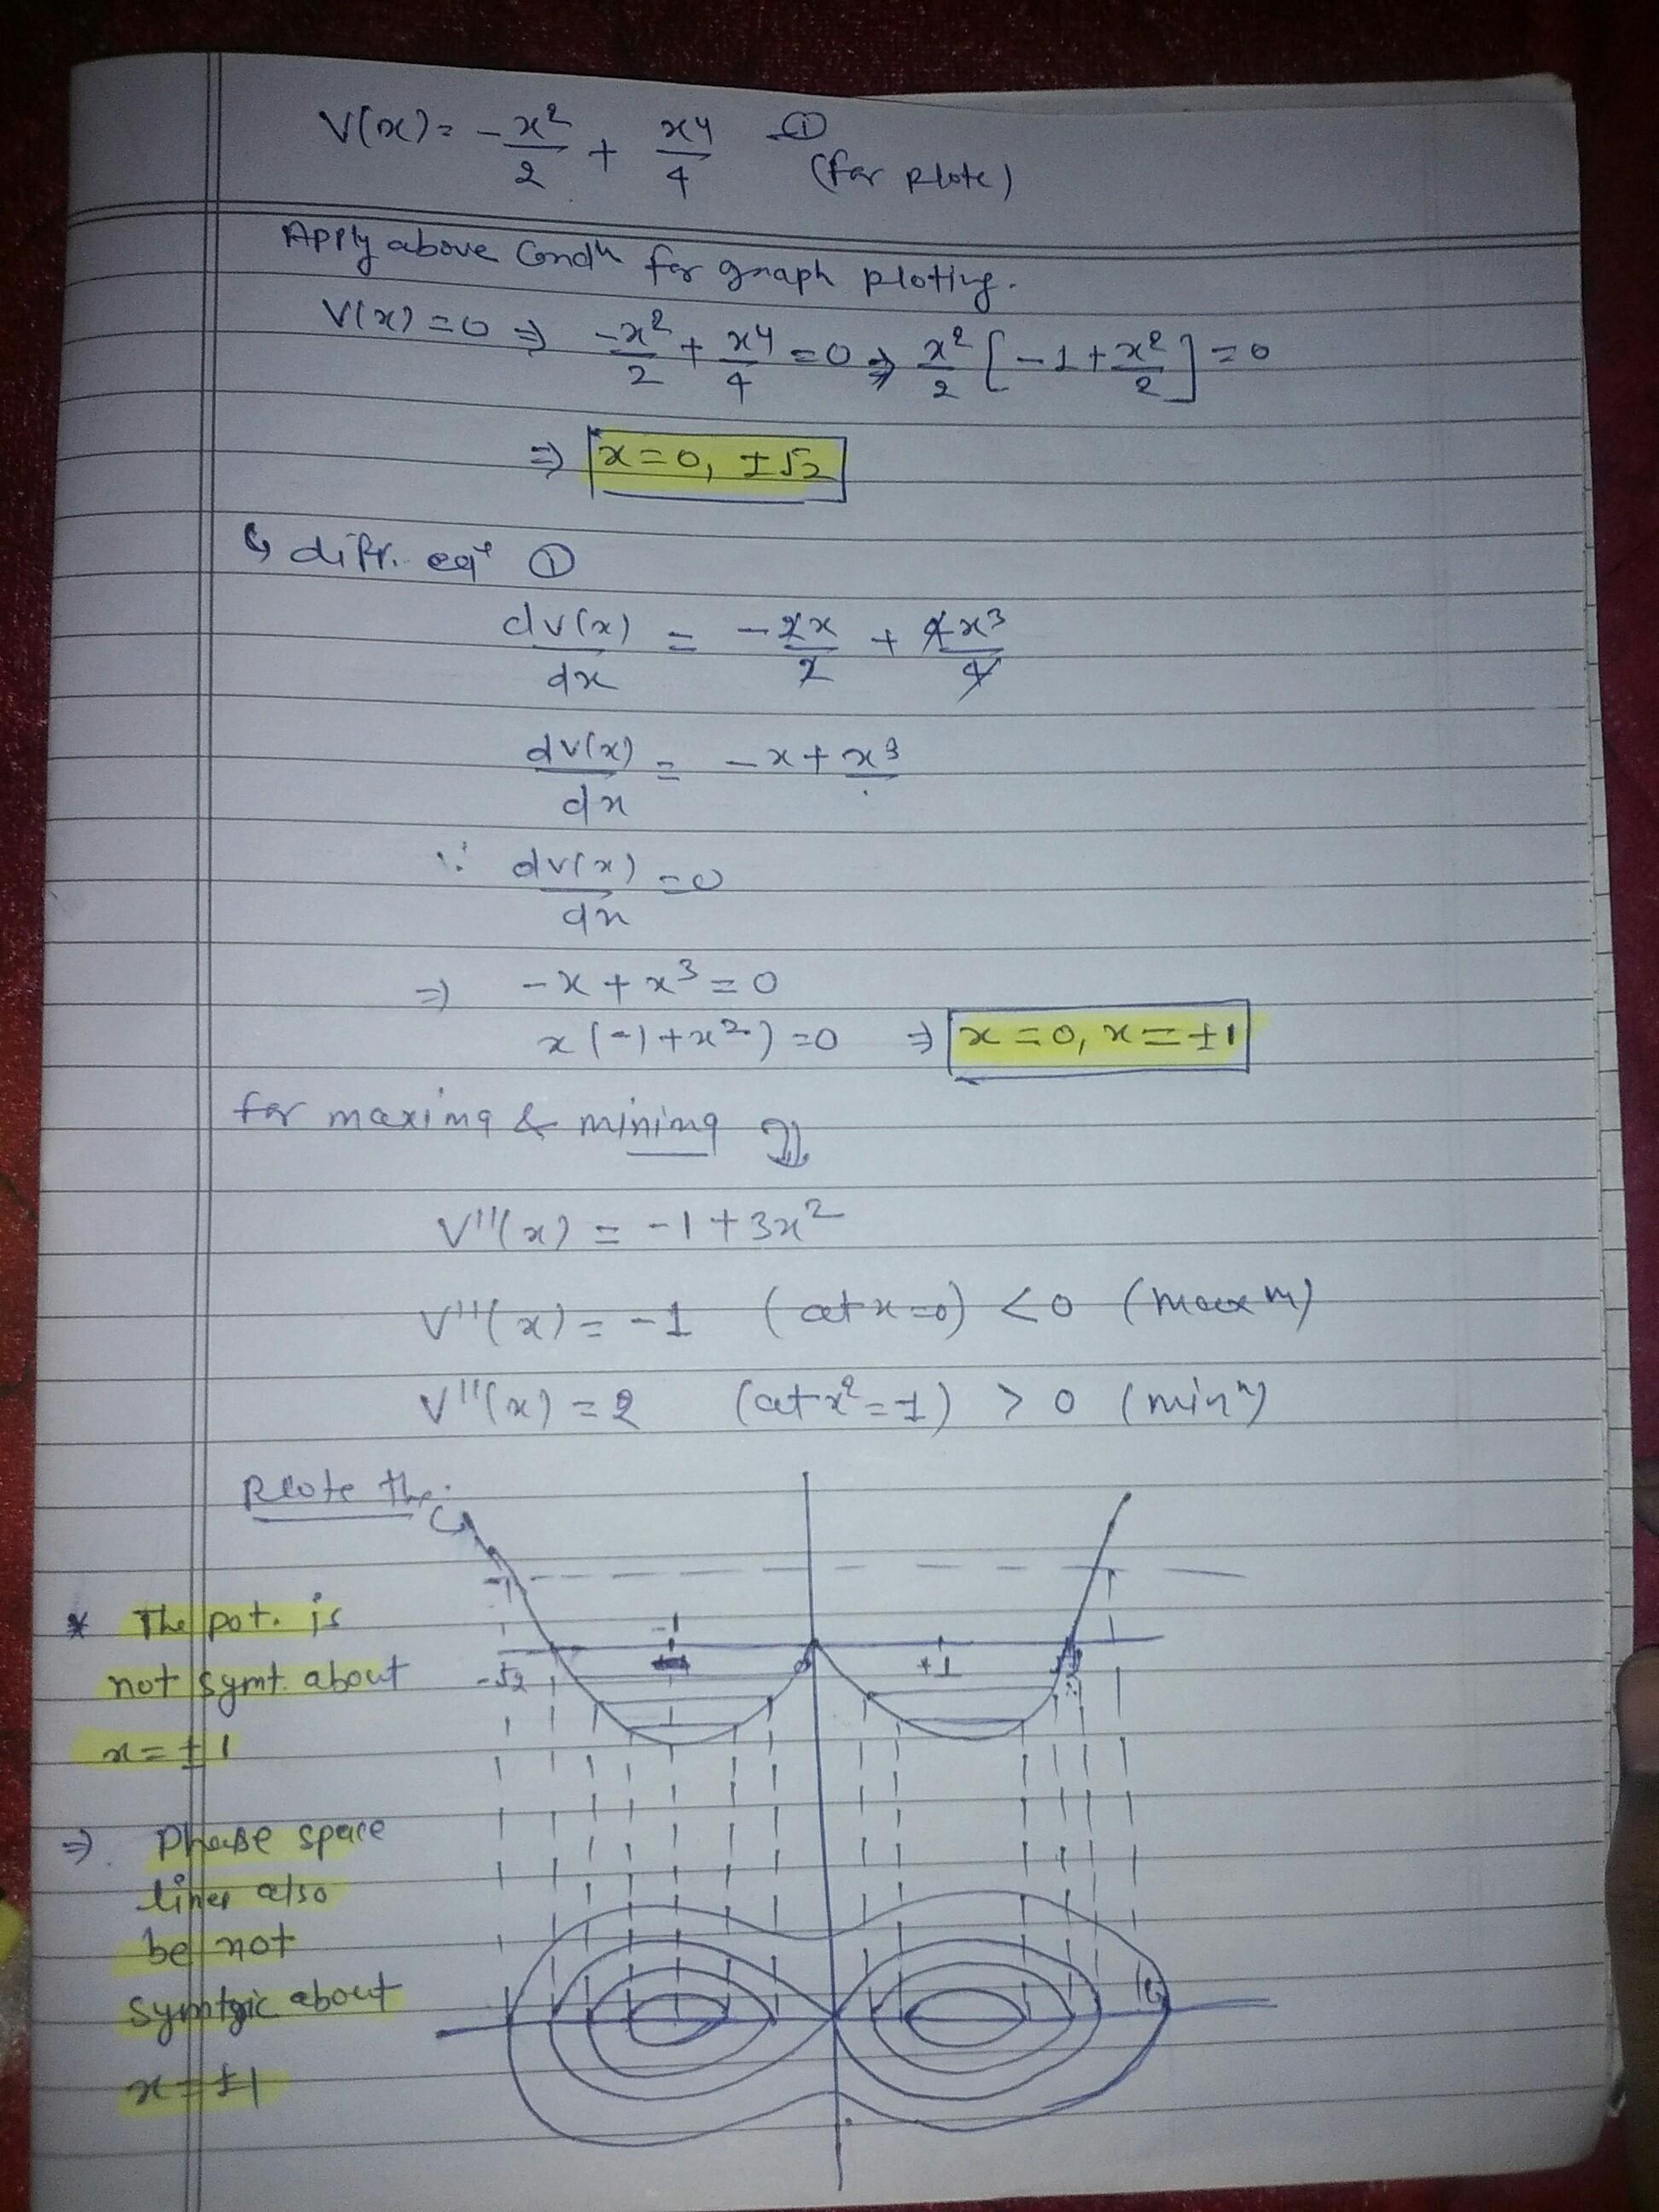 V(x) = -x²/2 + x⁴/4 ①
(for Plote)
Apply above Condⁿ for graph ploting.
V(x) = 0 ⇒ -x²/2 + x⁴/4 = 0 ⇒ x²/2 [-1 + x²/2] = 0
⇒ x = 0, ±√2
↳ diff. eqⁿ ①
dv(x)/dx = -2x/2 + 4x³/4
dv(x)/dx = -x + x³
∵ dv(x)/dx = 0
⇒ -x + x³ = 0
x(-1 + x²) = 0 ⇒ x = 0, x = ±1
for maxima & minima
V''(x) = -1 + 3x²
V''(x) = -1 (at x=0) < 0 (maxᵐ)
V''(x) = 2 (at x² = 1) > 0 (minᵐ)
Plote the
* The pot. is
not symt. about
x = ±1
⇒ Phase space
lines also
be not
about
x = ±1
-1
-√2
0
+1
√2